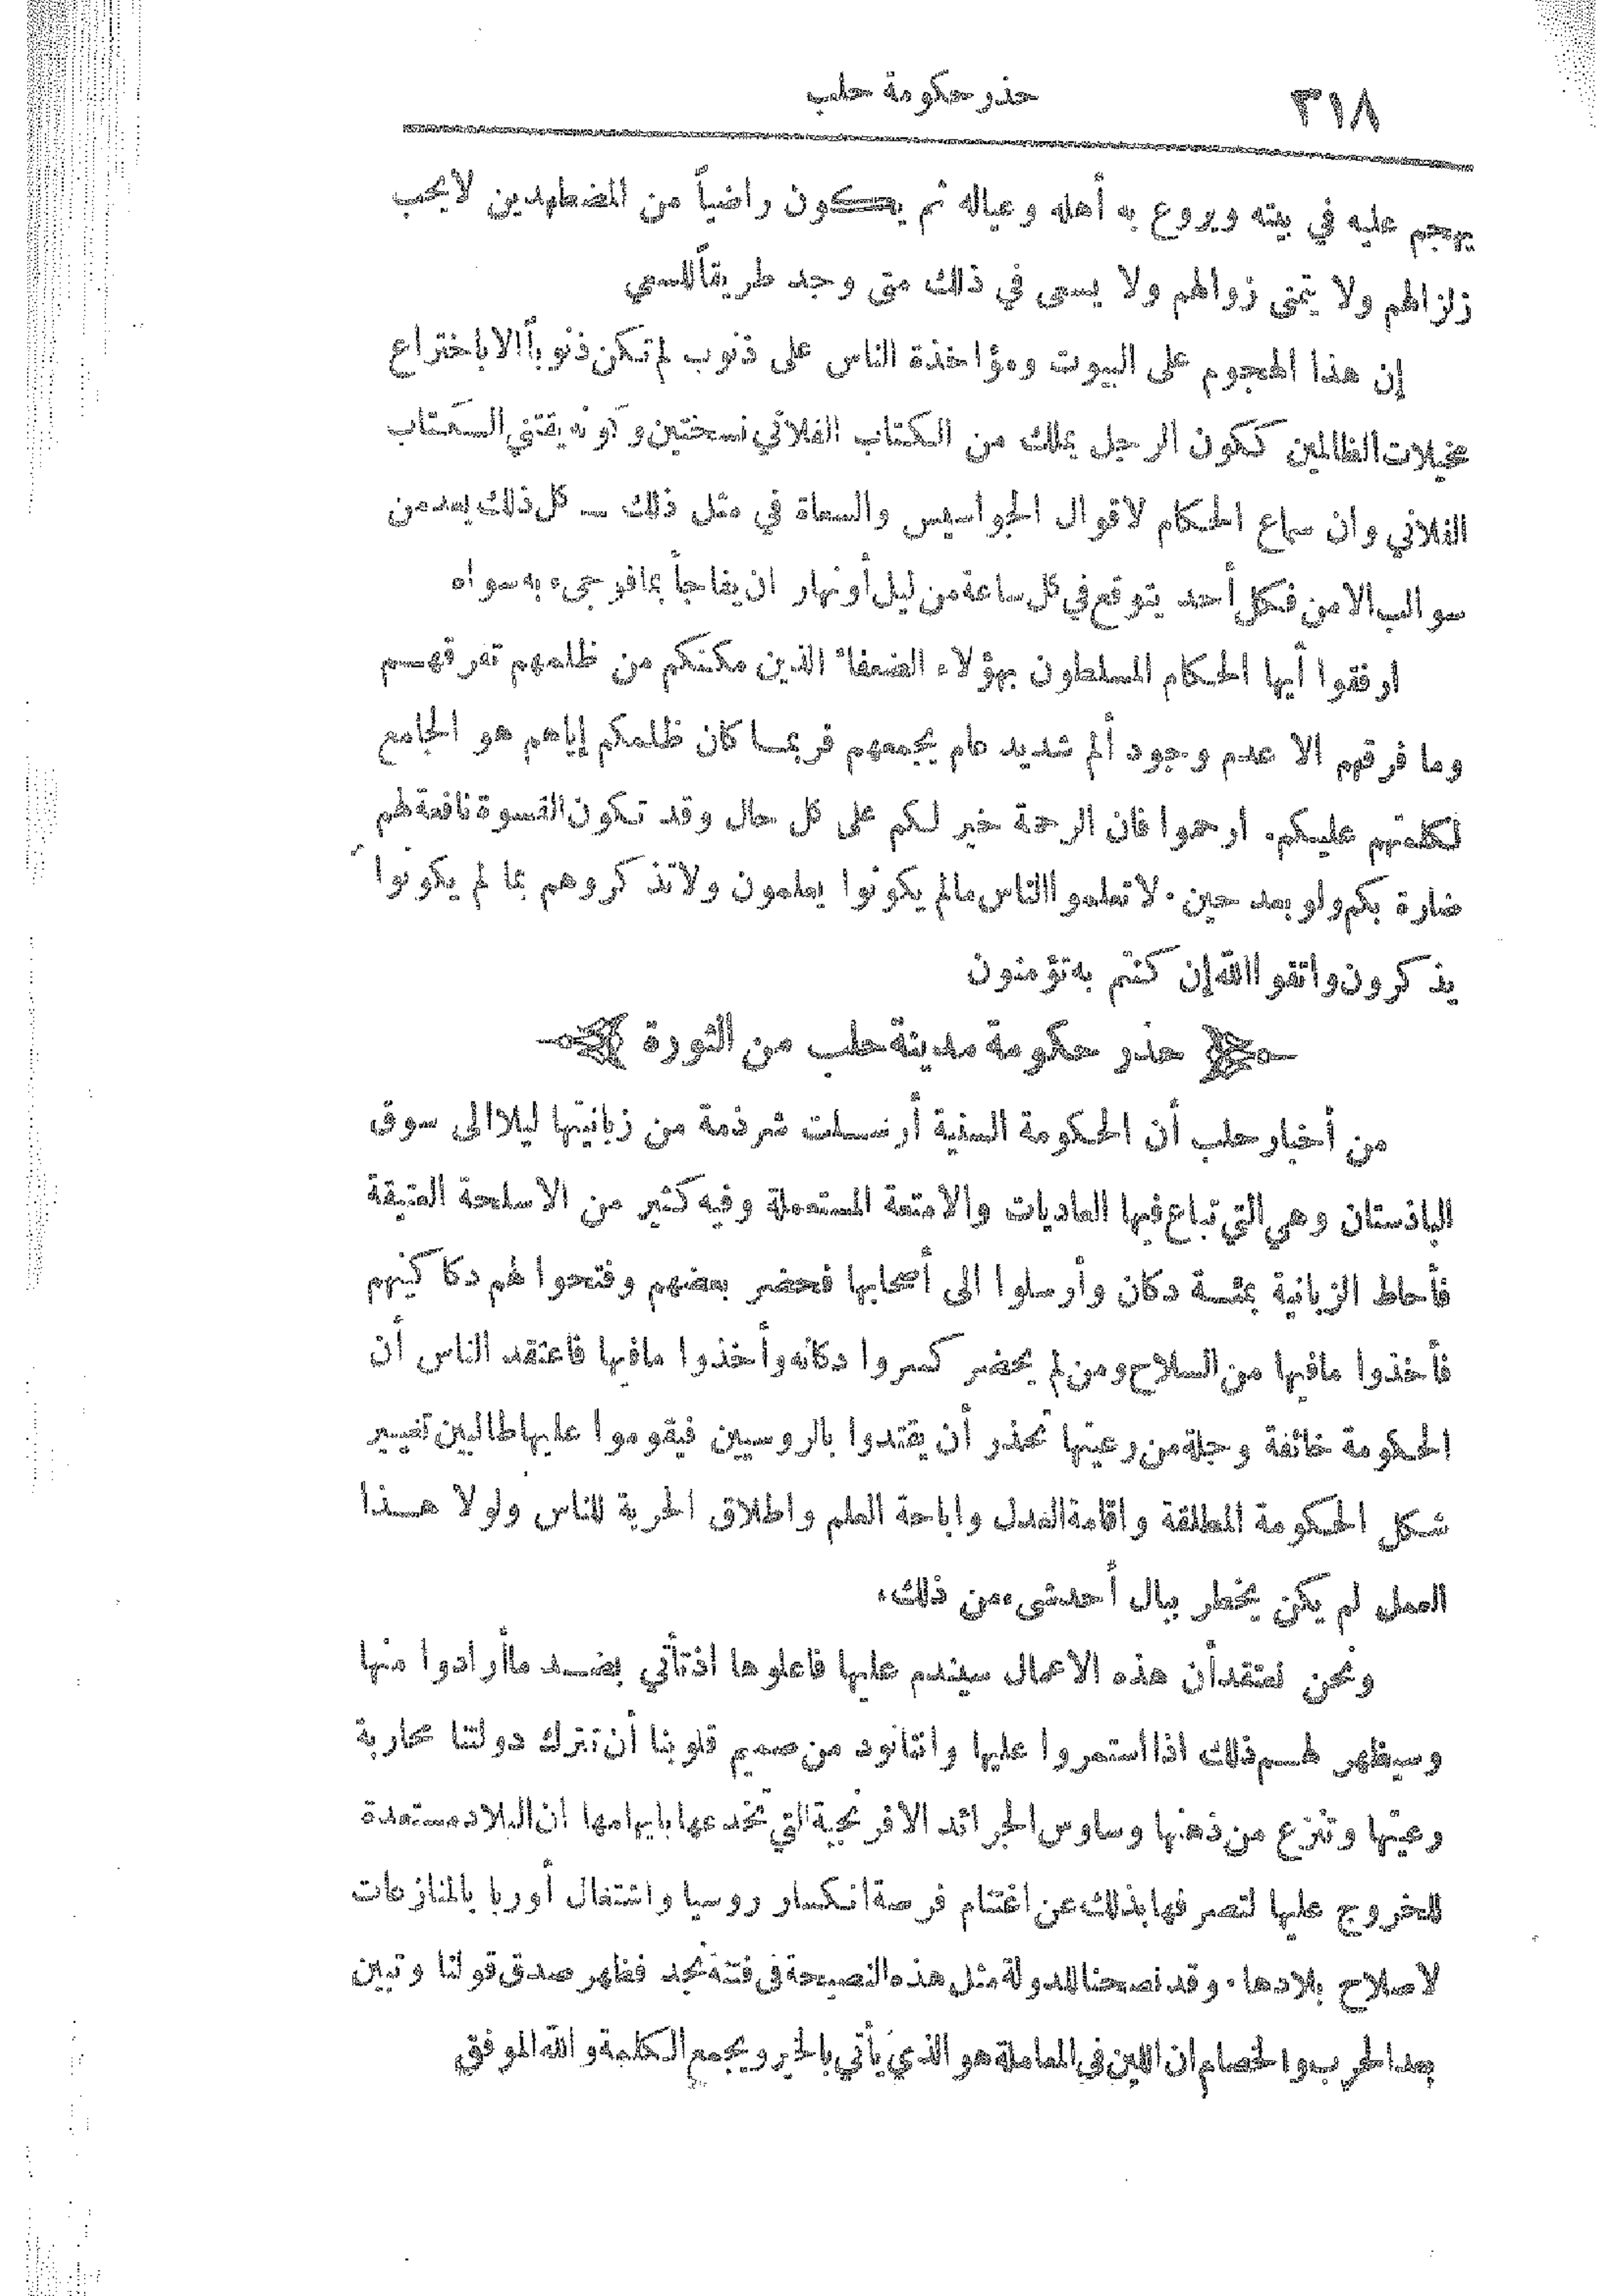 ٣١٨ حذر حكومة حلب
يهجم عليه في بيته ويروع به أهله وعياله ثم يكون راضياً من المضطهدين لا يحب
زلزالهم ولا يتمنى زوالهم ولا يسعى في ذلك متى وجد طريقاً للسعي
إن هذا الهجوم على البيوت ومؤاخذة الناس على ذنوب لم تكن ذنوباً الا باختراع
مخيلات الظالمين ككون الرجل يملك من الكتاب الفلاني نسختين و كونه يقتني الكتاب
الفلاني وان سماع الحكام لاقوال الجواسيس والسعاة في مثل ذلك ـ كل ذلك يعد من
سوالب الامن فكل أحد يتوقع في كل ساعة من ليل أو نهار ان يفاجأ بما فوجىء به سواه
ارفقوا أيها الحكام المسلطون بهؤلاء الضعفاء الذين مكنكم من ظلمهم تفرقهم
وما فرقهم الا عدم وجود ألم شديد عام يجمعهم فربما كان ظلمكم إياهم هو الجامع
لكلمتهم عليكم. ارحموا فان الرحمة خير لكم على كل حال وقد تكون القسوة نافعة لهم
ضارة بكم ولو بعد حين. لا تعلموا الناس ما لم يكونوا يعلمون ولا تذكروهم بما لم يكونوا
يذكرون واتقوا الله إن كنتم به تؤمنون
حذر حكومة مدينة حلب من الثورة
من أخبار حلب أن الحكومة السنية أرسلت شرذمة من زبانيتها ليلا الى سوق
الباذستان وهي التي تباع فيها العاديات والامتعة المستعملة وفيه كثير من الاسلحة العتيقة
فأحاط الزبانية بمئة دكان وأرسلوا الى أصحابها فحضر بعضهم وفتحوا لهم دكاكينهم
فأخذوا مافيها من السلاح ومن لم يحضر كسروا دكانه وأخذوا مافيها فاعتقد الناس أن
الحكومة خائفة وجلة من رعيتها تحذر أن يقتدوا بالروسيين فيقوموا عليها طالبين تغيير
شكل الحكومة المطلقة واقامة العدل واباحة العلم واطلاق الحرية للناس ولولا هذا
العمل لم يكن يخطر ببال أحد شىء من ذلك.
ونحن نعتقد أن هذه الاعمال سيندم عليها فاعلوها اذ تأتي بضد ما أرادوا منها
وسيظهر لهم ذلك اذا استمروا عليها واننا نود من صميم قلوبنا أن تترك دولتنا محاربة
رعيتها وتنزع من ذهنها وساوس الجرائد الافرنجية التي تخدعها بايهامها ان البلاد مستعدة
للخروج عليها لتصرفها بذلك عن اغتنام فرصة انكسار روسيا واشتغال أوربا بالمنازعات
لاصلاح بلادها. وقد نصحنا للدولة مثل هذه النصيحة في فتنة نجد فظهر صدق قولنا وتبين
بعد الحرب والخصام ان اللين في المعاملة هو الذي يأتي بالخير ويجمع الكلمة والله الموفق